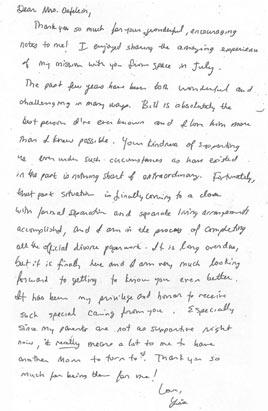 Dear Mrs. Oefelein,
Thank you so much for your wonderful, encouraging
notes to me! I enjoyed sharing the amazing experience
of my mission with you from space in July.
The past few years have been both wonderful and
challenging in many ways. Bill is absolutely the
best person I've ever known and I love him more
than I knew possible. Your kindness of supporting
us even under such circumstances as have existed
in the past is nothing short of extraordinary. Fortunately,
that past situation is finally coming to a close
with formal separation and separate living arrangements
accomplished, and I am in the process of completing
all the official divorce paperwork. It is long overdue,
but it is finally here and I am very much looking
forward to getting to know you even better.
It has been my privilege and honor to receive
such special caring from you. Especially
since my parents are not as supportive right
now, it really means a lot to me to have
another Mom to turn to. Thank you so
much for being there for me!
Love,
Lisa